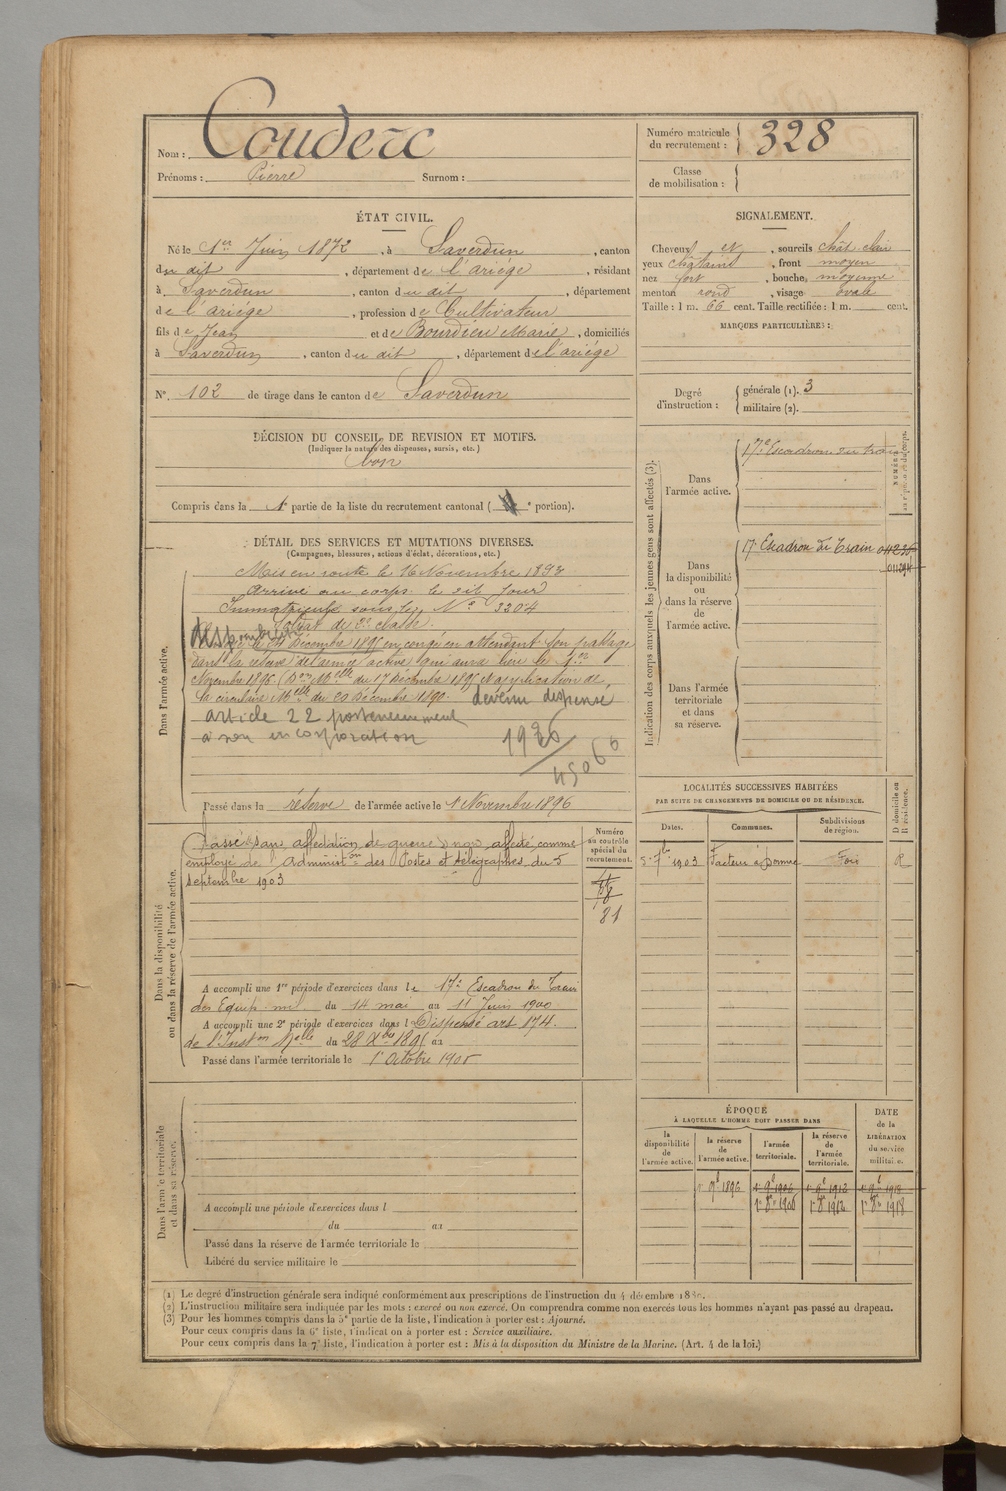 Nom : Couderc
Prénoms : Pierre Surnom :
Numéro matricule du recrutement : 328
Classe de mobilisation :
ÉTAT CIVIL.
Né le 1er Juin 1872, à Saverdun, canton
du dit, département de l'ariége, résidant
à Saverdun, canton du dit, département
de l'ariége, profession de Cultivateur
fils de Jean et de Bourdieu Marie, domiciliés
à Saverdun, canton du dit, département de l'ariége
N°. 102 de tirage dans le canton de Saverdun
SIGNALEMENT.
Cheveux et, sourcils chât. clair
yeux châtains, front moyen
nez fort, bouche moyenne
menton rond, visage ovale
Taille : 1 m. 66 cent. Taille rectifiée : 1 m. cent.
MARQUES PARTICULIÈRES :
Degré d'instruction : générale (1). 3
militaire (2).
DÉCISION DU CONSEIL DE REVISION ET MOTIFS.
(Indiquer la nature des dispenses, sursis, etc.)
bon
Compris dans la 1e partie de la liste du recrutement cantonal ( e portion).
DÉTAIL DES SERVICES ET MUTATIONS DIVERSES.
(Campagnes, blessures, actions d'éclat, décorations, etc.)
Dans l'armée active.
Mis en route le 16 Novembre 1893
Arrivé au corps le dit jour
Immatriculé sous le N° 3204
Soldat de 2e classe.
Décembre 1895 en congé en attendant son passage
dans la réserve de l'armée active qui aura lieu le 1er
Novembre 1896. (Don Melle du 17 Décembre 1895 et application de
la circulaire Melle du 20 Décembre 1890. devenu dispensé
article 22 postérieurement
à son incorporation
1936
45066
Passé dans la réserve de l'armée active le 1 Novembre 1896
Indication des corps auxquels les jeunes gens sont affectés (3).
Dans l'armée active.
17e Escadron du train
Dans la disponibilité ou dans la réserve de l'armée active.
17e Escadron du Train
011294
Dans l'armée territoriale et dans sa réserve.
LOCALITÉS SUCCESSIVES HABITÉES
PAR SUITE DE CHANGEMENTS DE DOMICILE OU DE RÉSIDENCE.
D domicile ou R résidence.
Dates. Communes. Subdivisions de région.
5 7bre 1903 Facteur à Foix R
Dans la disponibilité ou dans la réserve de l'armée active.
Numéro au contrôle spécial du recrutement.
Passé sans affectation de guerre non affecté comme
employé de l'Administon des Postes et télégraphes du 5
septembre 1903
81
A accompli une 1re période d'exercices dans le 17e Escadron du Train
des Equip. mil. du 14 mai au 11 Juin 1900
A accompli une 2e période d'exercices dans l Dispensé art 174.
de l'Inston Melle du 28 Xbre 1895 au
Passé dans l'armée territoriale le 1 Octobre 1906
Dans l'armée territoriale et dans sa réserve.
A accompli une période d'exercices dans l
du au
Passé dans la réserve de l'armée territoriale le
Libéré du service militaire le
ÉPOQUE
À LAQUELLE L'HOMME DOIT PASSER DANS
DATE de la LIBÉRATION du service militaire.
la disponibilité de l'armée active. la réserve de l'armée active. l'armée territoriale. la réserve de l'armée territoriale.
1er 9e 1896 1er 9e 1906 1er 9e 1912 1er 9e 1918
1er 8e 1906 1er 8e 1912 1er 8e 1918
(1) Le degré d'instruction générale sera indiqué conformément aux prescriptions de l'instruction du 4 décembre
(2) L'instruction militaire sera indiquée par les mots : exercé ou non exercé. On comprendra comme non exercés tous les hommes n'ayant pas passé au drapeau.
(3) Pour les hommes compris dans la 5e partie de la liste, l'indication à porter est : Ajourné.
Pour ceux compris dans la 6e liste, l'indication à porter est : Service auxiliaire.
Pour ceux compris dans la 7e liste, l'indication à porter est : Mis à la disposition du Ministre de la Marine. (Art. 4 de la loi.)